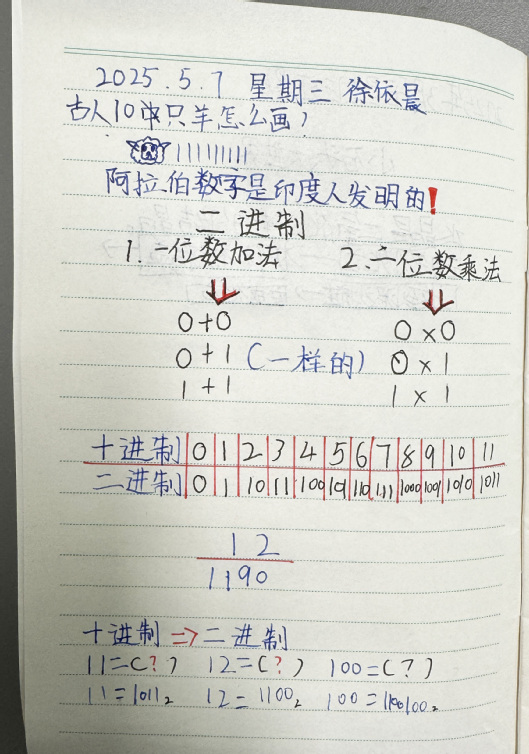 2025.5.7 星期三 徐依晨
古人10只羊怎么画?
阿拉伯数字是印度人发明的!
二进制
1. 一位数加法 2. 一位数乘法
0+0 0×0
0+1 (一样的) 0×1
1+1 1×1
十进制 0 1 2 3 4 5 6 7 8 9 10 11
二进制 0 1 10 11 100 101 110 111 1000 1001 1010 1011
12
1190
十进制 => 二进制
11=(?) 12=(?) 100=(?)
11=1011₂ 12=1100₂ 100=1100100₂